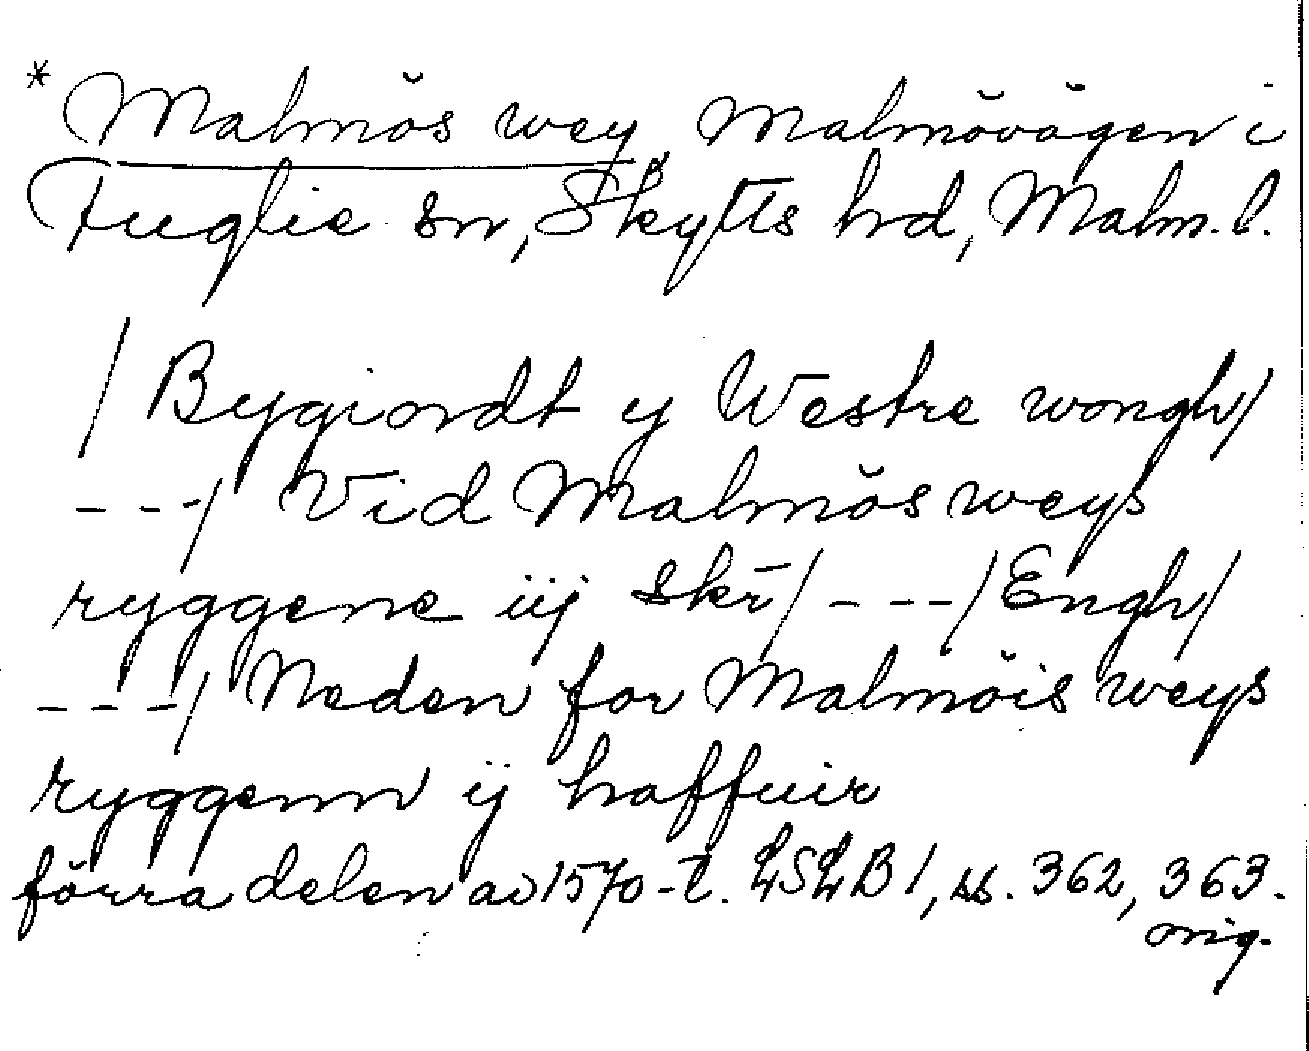 * Malmös wey, Malmövägen i
Fuglie sn, Skytts hd, Malm. l.
/ Bygiordt y Westre wongh /
---/ Vid Malmös weys
ryggene iij skr̄ / ---/ Engh /
---/ Neden for Malmöis weys
ryggenn ij haffuir
förra delen av 1570-t. LSLB 1, ss. 362, 363.
orig.